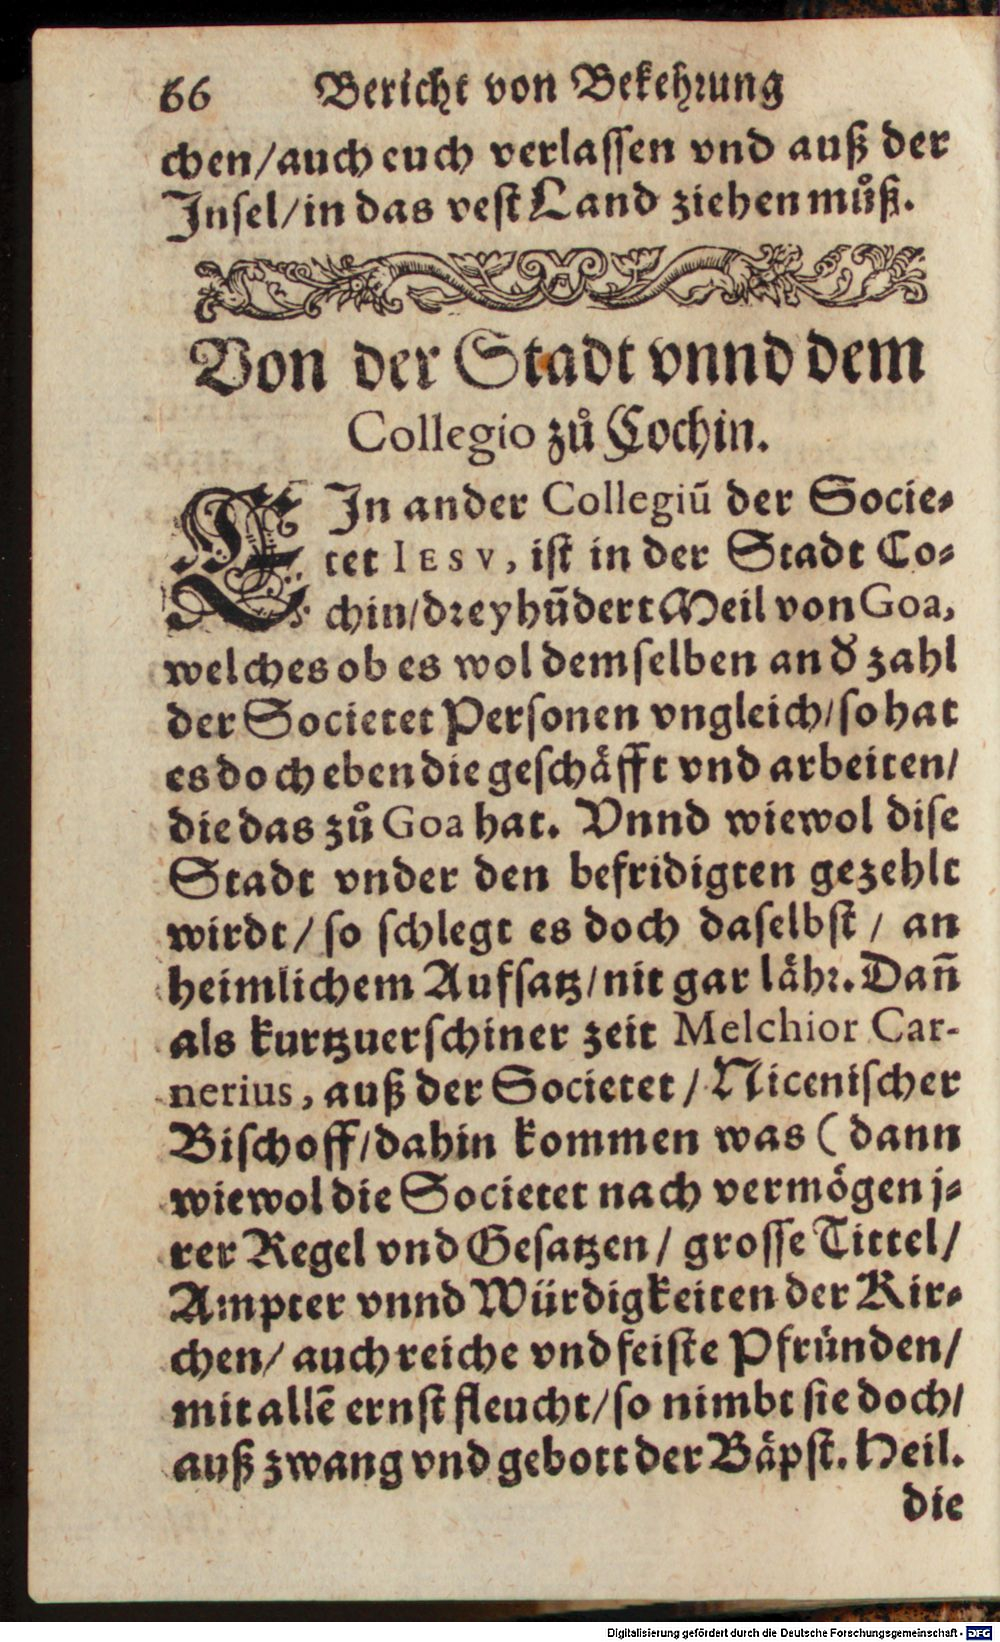 66 Bericht von Bekehrung
chen/auch euch verlassen vnd auß der
Insel/in das vest Land ziehen můß.
Von der Stadt vnnd dem
Collegio zů Cochin.
EIn ander Collegiū der Socie-
tet IESV, ist in der Stadt Co-
chin/dreyhūdert Meil von Goa,
welches ob es wol demselben an d̕ zahl
der Societet Personen vngleich/so hat
es doch eben die geschäfft vnd arbeiten/
die das zů Goa hat. Vnnd wiewol dise
Stadt vnder den befridigten gezehlt
wirdt/ so schlegt es doch daselbst / an
heimlichem Aufsatz/nit gar lähr. Dañ
als kurtzuerschiner zeit Melchior Car-
nerius, auß der Societet / Nicenischer
Bischoff/dahin kommen was ( dann
wiewol die Societet nach vermögen j-
rer Regel vnd Gesatzen / grosse Tittel/
Ampter vnnd Würdigkeiten der Kir-
chen/ auch reiche vnd feiste Pfründen/
mit allē ernst fleucht/so nimbt sie doch/
auß zwang vnd gebott der Bäpst. Heil.
die
Digitalisierung gefördert durch die Deutsche Forschungsgemeinschaft - DFG